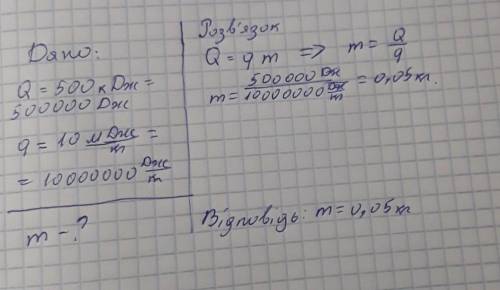 Дано:
Q = 500 кДж =
500000 Дж
q = 10 мДж/т =
= 10000000 Дж/т
m - ?
Розв'язок
Q = q m => m = Q/q
m = 500000 Дж / 10000000 Дж/m = 0,05 кг.
Відповідь: m = 0,05 кг